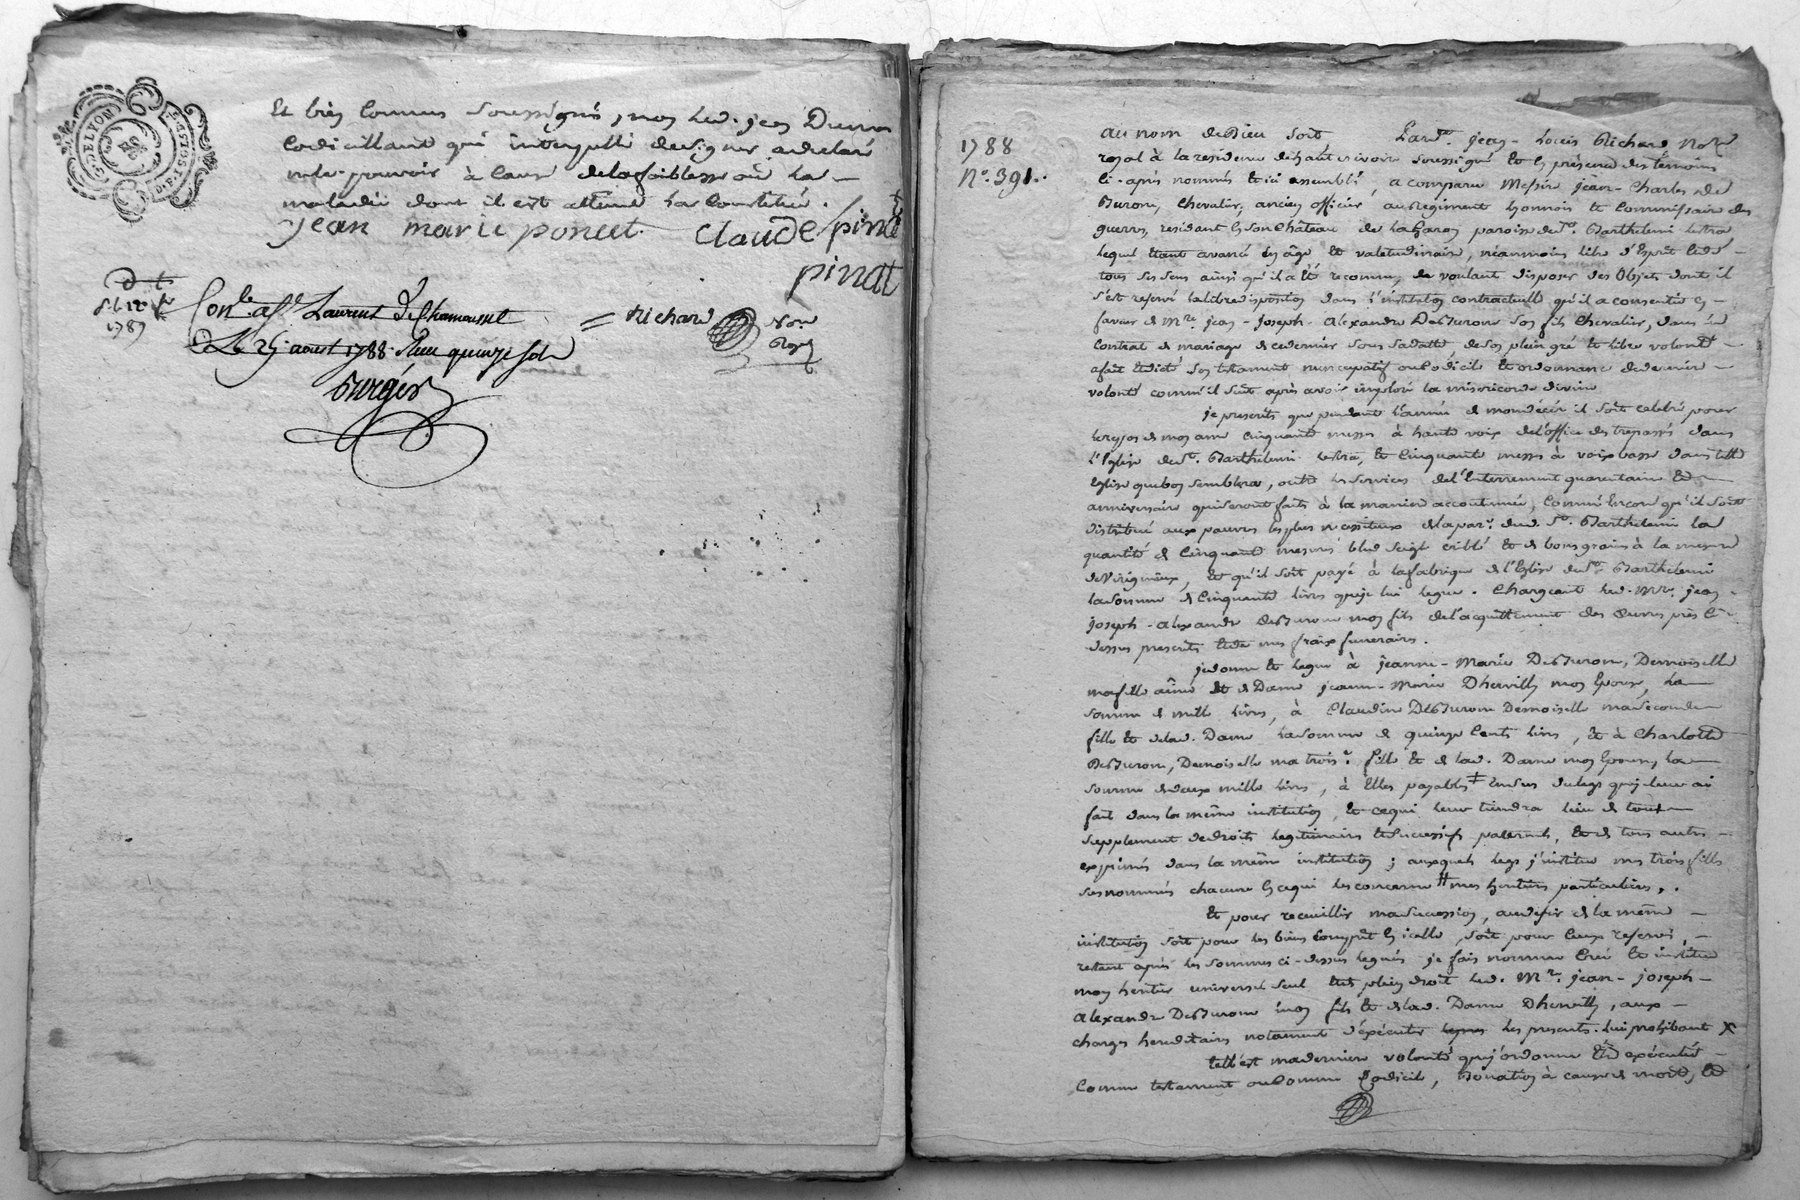 G. DE LYON
Et bien Connus Soussignés, non led. jean
Codicillant qui interpellé de signer a declaré
ne le pouvoir à Cause de la foiblesse où la
maladie dont il est atteint l'a Constitué.
jean marie poncet Claude pinat
pinat
1789
Conlé. à St Laurent de Chamousset
Le 25 aoust 1788. Reçu quinze sols
Burgés
Richard Nore
Royl
1788
N.o 391.
au nom de Dieu soit Pard.t jean-Louis Richard Nore
royal à la residence de haute rivoire soussigné et En présence des temoins
Ci-après nommés et ici assemblés, a comparu Messire jean-Charles de
Burone, Chevalier, ancien officier au Regiment Lyonnois et Commissaire des
guerres, résidant En son Château de la Garon paroisse de St. Barthelemi Lestra
lequel étant avancé En âge et valetudinaire, néanmoins libre d'Esprit et de
tous ses sens ainsi qu'il a été reconnu, de voulant disposer des Objets dont il
s'est reservé la libre disposition dans l'institution contractuelle qu'il a consentie En
faveur de Mre. jean-joseph-Alexandre DeBurone Son fils Chevalier, dans le
Contrat de mariage de ce dernier sous sa datte, de son plein gré et libre volonté
a fait et dicté Son testament nuncupatif ou Codicile et ordonnance de derniere
volonté comm'il suit après avoir imploré la misericorde divine
je prescrits que pendant l'année de mon décès il soit celebré pour
le repos de mon ame Cinquante messes à haute voix de l'office des trepassés dans
l'Eglise de St. Barthelemi Lestra, et Cinquante messes à voix basse dans telle
Eglise que bon semblera, outre les services de l'Enterrement quarentaine et
anniversaire qui seront faits à la maniere accoutumée, Comme Encore qu'il soit
distribué aux pauvres les plus necessiteux de la par. dud. St. Barthelemi la
quantité de Cinquante mesures bled seigle criblé et de bons grains à la mesure
de Virigneux, et qu'il soit payé à la fabrique de l'Eglise de St. Barthelemi
la somme de Cinquante livres que je lui legue. Chargeant led. Mre. jean-
joseph-alexandre DeBurone mon fils de l'acquittement des Œuvres pies Ci-
dessus prescrits et de mes fraix funeraires.
je donne et legue à jeanne-Marie DeBurone, Demoiselle
ma fille ainée et de Dame jeanne-Marie Dhervilly mon Epouse, la
somme de mille livres, à Claudine DeBurone Demoiselle ma seconde
fille et de lad. Dame la somme de quinze Cents livres, et à Charlotte
DeBurone, Demoiselle ma trois.e fille et de lad. Dame mon Epouse, la
somme de deux mille livres, à Elles payables ‡ Ensus du legs que je leur ai
fait dans la même institution, et ce qui leur tiendra lieu de tout
supplement de droits legitimaires et successifs paternels, et de tous autres
exprimés dans la même institution; auxquels legs j'institue mes trois filles
susnommées chacune En ce qui les concerne # mes heritieres particulieres.
Et pour recueillir ma succession, au desir de la même
institution soit pour les biens Compris En icelle, soit pour Ceux reservés,
restant après les sommes ci-dessus leguées je fais nomme Créé et institue
mon heritier universel seul et de plein droit led. Mre. jean-joseph-
alexandre DeBurone mon fils et de lad. Dame Dhervilly, aux
charges hereditaires notament d'exécuter les presentes. lui prohibant X
telle est ma derniere volonté que j'ordonne être exécutée
Comme testament ou Comme Codicile, Donation à cause de mort, et